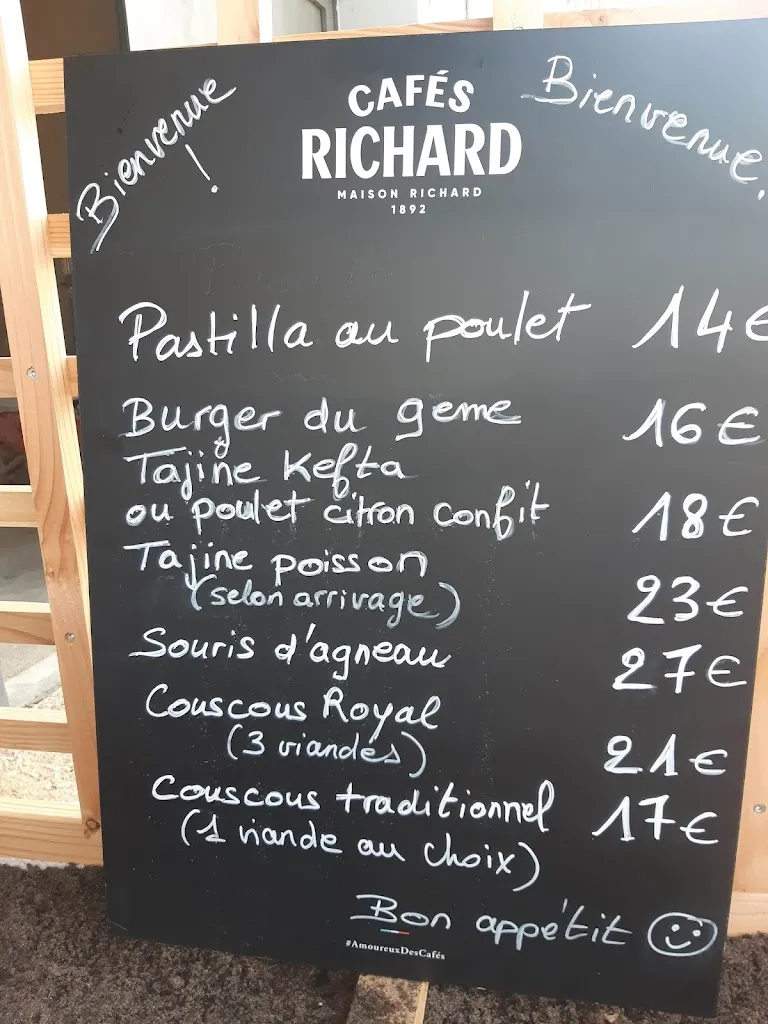 Bienvenue !
CAFÉS
RICHARD
MAISON RICHARD
1892
Bienvenue.
Pastilla au poulet 14€
Burger du geme 16€
Tajine Kefta
ou poulet citron confit 18€
Tajine poisson
(selon arrivage) 23€
Souris d'agneau 27€
Couscous Royal
(3 viandes) 21€
Couscous traditionnel 17€
(1 viande au choix)
Bon appétit
#AmoureuxDesCafés